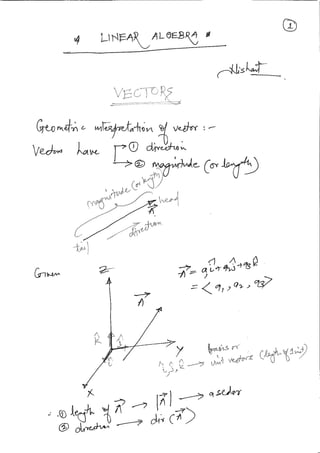 ①
# LINEAR ALGEBRA #
Nishant
VECTORS
Geometric interpretation of vector :-
Vectors have → ① direction
→ ② magnitude (or length)
magnitude (or length)
head
A
direction
tail
Given
Z
A = a₁i + a₂j + a₃k
= < a₁, a₂, a₃>
A
k j
i
Y
X
basis or
i, j, k → unit vectors (length of 1 unit)
① length of A → |A| → a scalar
② direction → dir (A)